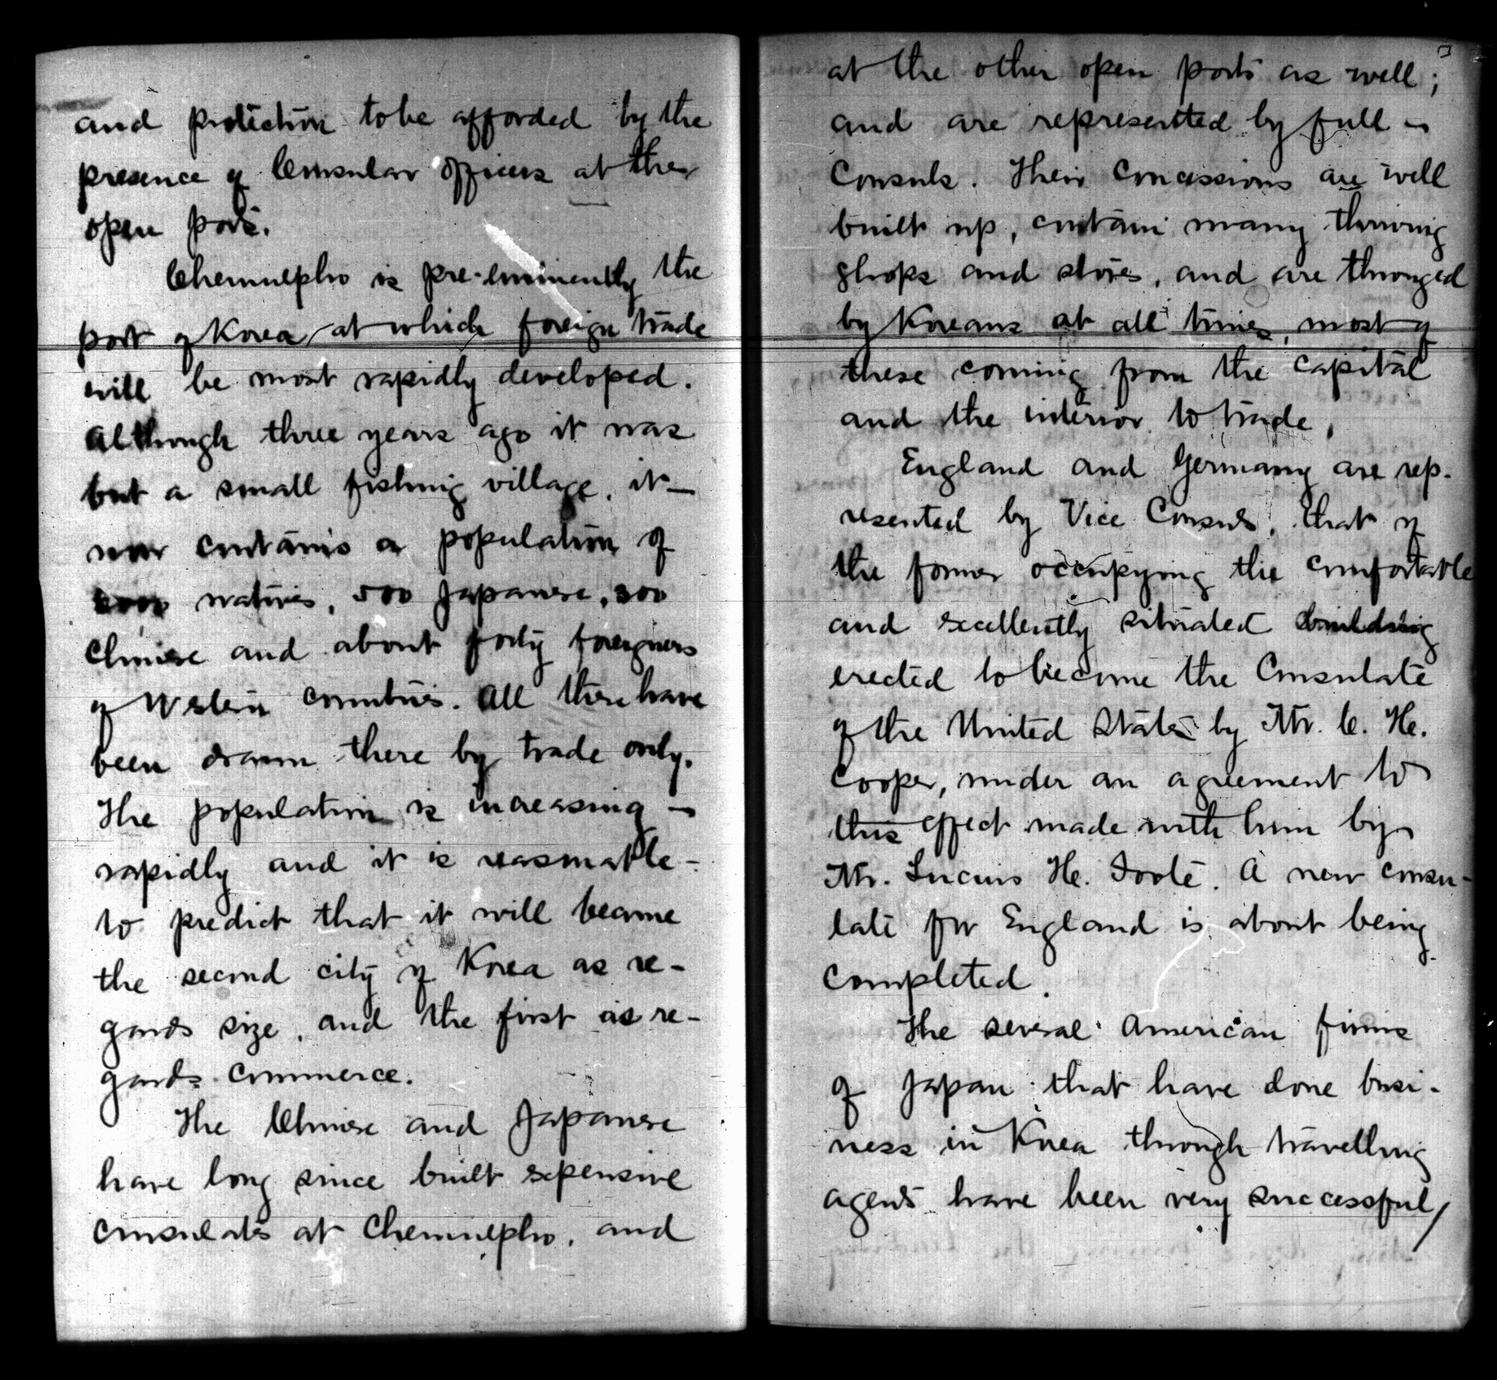 and protection to be afforded by the
presence of Consular officers at the
open ports.
Chemulpho is pre-eminently the
port of Korea at which foreign trade
will be most rapidly developed.
Although three years ago it was
but a small fishing village, it
now contains a population of
natives, 500 Japanese, 300
Chinese and about forty foreigners
of Western countries. All these have
been drawn there by trade only.
The population is increasing
rapidly and it is reasonable
to predict that it will become
the second city of Korea as re-
gards size, and the first as re-
gards commerce.
The Chinese and Japanese
have long since built expensive
consulates at Chemulpho, and
at the other open ports as well;
and are represented by full
Consuls. Their concessions are well
built up, contain many thriving
shops and stores, and are thronged
by Koreans at all times, most of
these coming from the capital
and the interior to trade.
England and Germany are rep-
resented by Vice Consuls, that of
the former occupying the comfortable
and excellently situated building
erected to become the Consulate
of the United States by Mr. C. H.
Cooper, under an agreement to
this effect made with him by
Mr. Lucius H. Foote. A new consu-
late for England is about being
completed.
The several American firms
of Japan that have done busi-
ness in Korea through travelling
agents have been very successful,